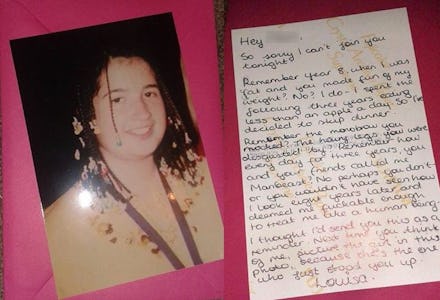 Hey
So sorry I can't join you
tonight.
Remember year 8, when I was
fat and you made fun of my
weight? No? I do - I spent the
following three years eating
less than an apple a day. So I've
decided to skip dinner.
Remember the monobrow you
mocked? The hairy legs you were
disgusted by? Remember how
every day for three years, you
and your friends called me
Manbeast? No - perhaps you don't
or you wouldn't have seen how
I look eight years later and
deemed me fuckable enough
to treat me like a human being.
I thought I'd send you this as a
reminder. Next time you think
of me, picture the girl in this
photo, because she's the one
who just stood you up.
Louisa.